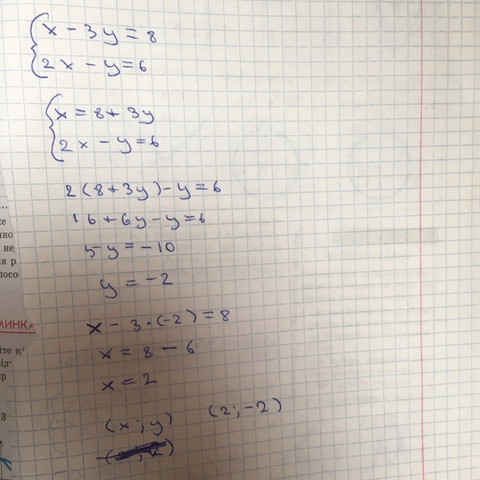 x - 3y = 8
2x - y = 6
x = 8 + 3y
2x - y = 6
2(8+3y) - y = 6
16 + 6y - y = 6
5y = -10
y = -2
x - 3·(-2) = 8
x = 8 - 6
x = 2
(x; y) (2; -2)
...
не
МИНКА
йте к
3